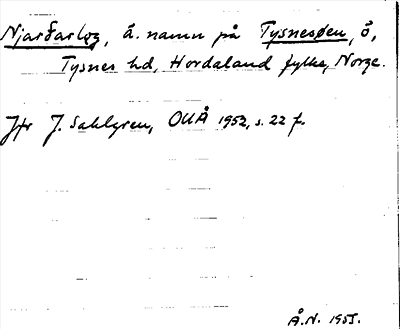 Njarðarlǫg, ä. namn på Tysnesøen, ö,
Tysnes hd, Hordaland fylke, Norge.
Jfr J. Sahlgren, OUÅ 1952, s. 22 f.
Å.N. 1955.